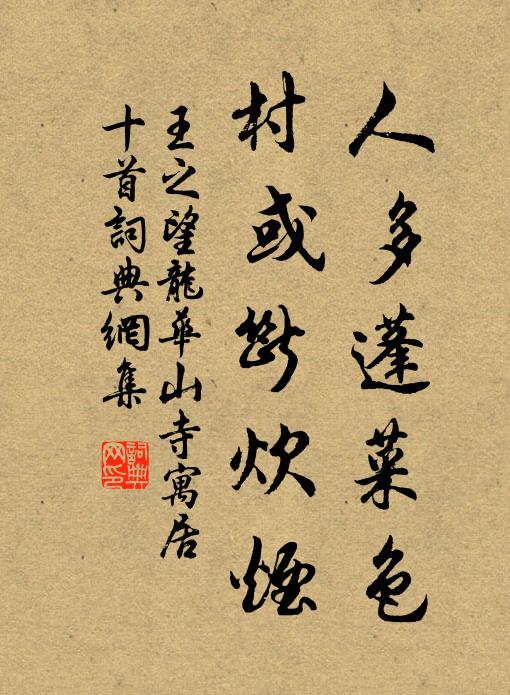 人多蓬菜色
村或斷炊煙
王之望龍華山寺寓居
十首詞典網集
詞典網印